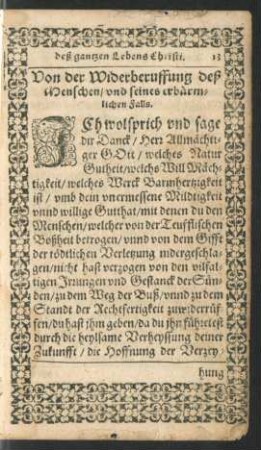 deß gantzen Lebens Christi. 13
Von der Widerberuffung deß
Menschen/ vnd seines erbärm-
lichen Falls.
ICh wolsprich vnd sage
dir Danck/ Herr Allmächti-
ger GOtt/ welches Natur
Gutheit/ welchs Will Mäch-
tigkeit/ welches Werck Barmhertzigkeit
ist/ vmb dein vnermessene Mildtigkeit
vnnd willige Gutthat/ mit denen du den
Menschen/ welcher von der Teufflischen
Boßheit betrogen/ vnnd von dem Gifft
der tödtlichen Verletzung nidergeschla-
gen/ nicht hast verzogen von den vilfal-
tigen Irrungen vnd Gestanck der Sün-
den/ zu dem Weg der Buß/ vnnd zu dem
Standt der Rechtfertigkeit zuwiderrüf-
fen/ du hast ihm geben/ da du ihn führetest
durch die heylsame Verheyssung deiner
Zukunfft/ die Hoffnung der Verzey-
hung